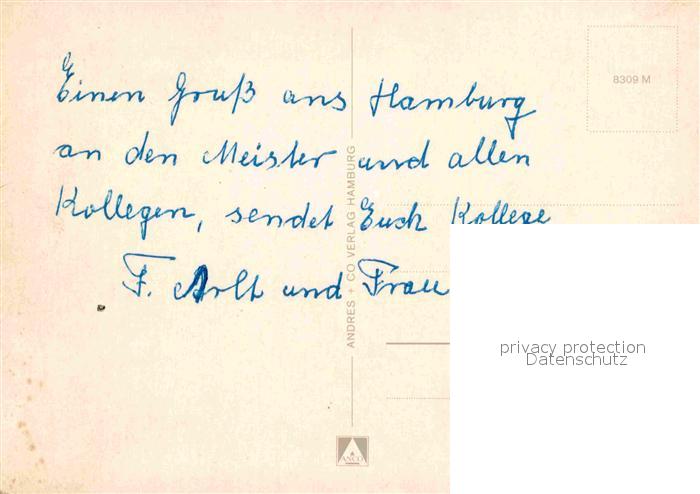 Einen Gruß aus Hamburg
an den Meister und allen
Kollegen, sendet Euch Kollege
F. Arlt und Frau
8309 M
ANDRES + CO VERLAG HAMBURG
privacy protection
Datenschutz
ANCO